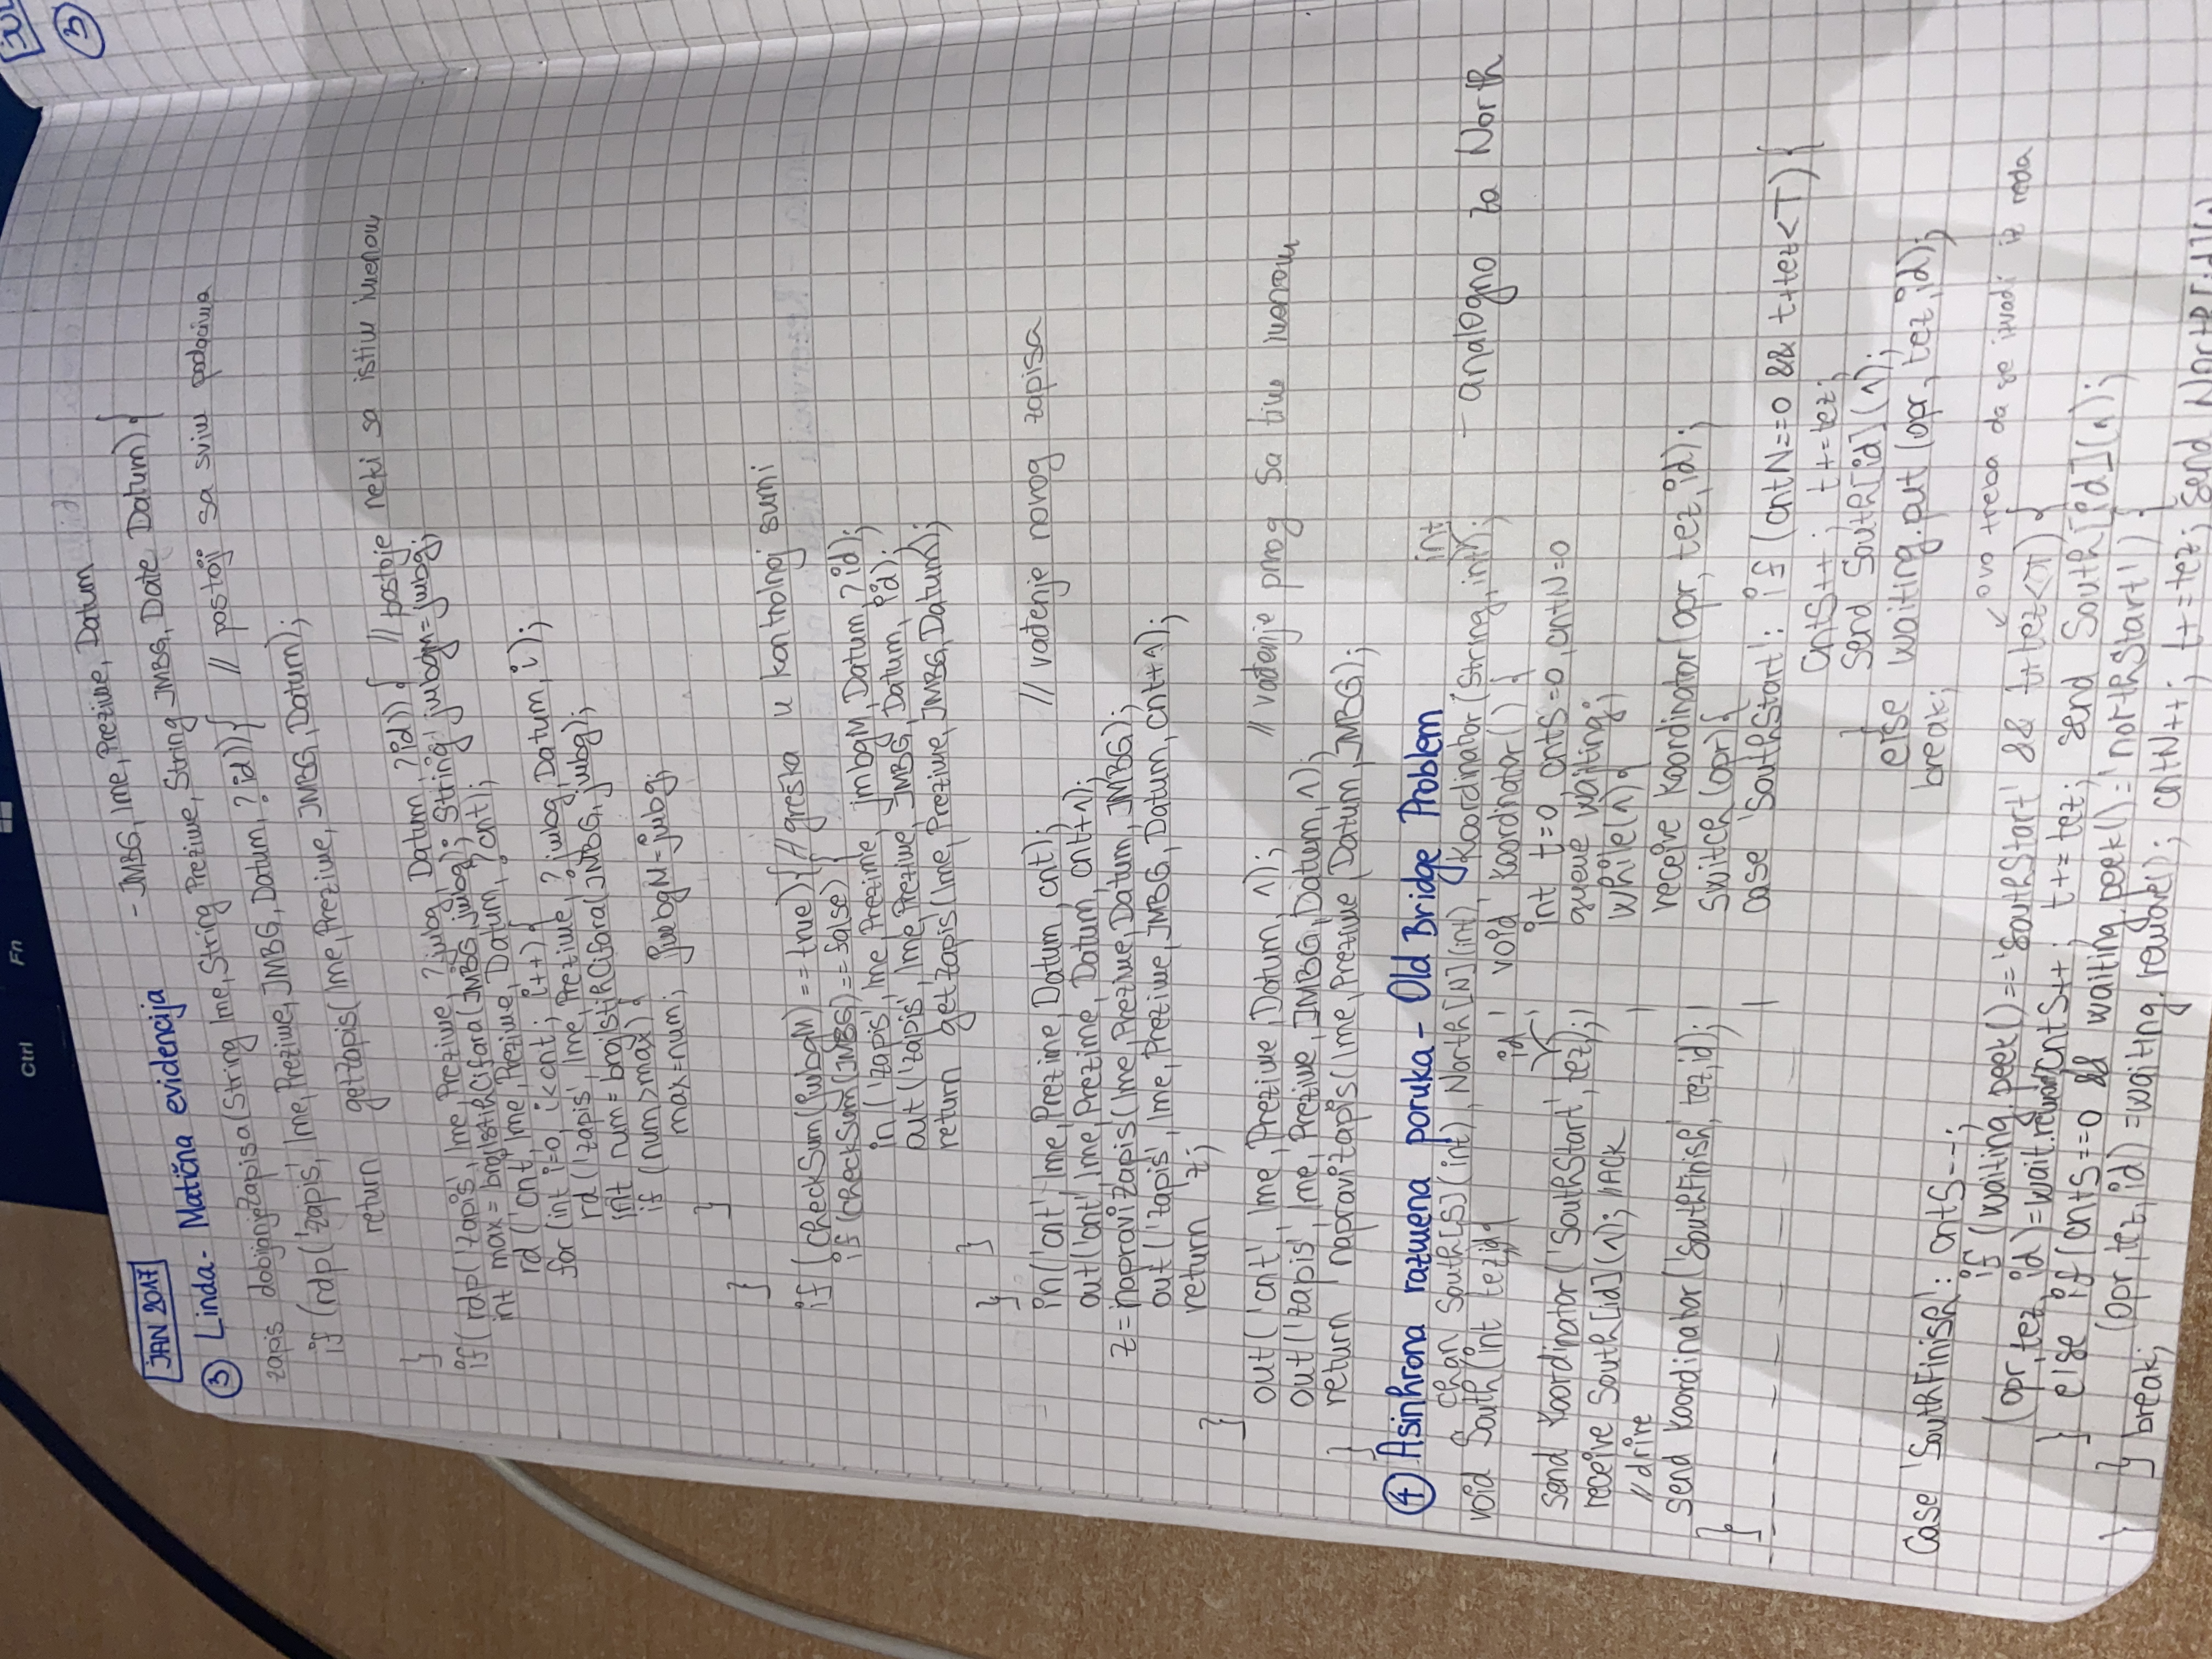 Ctrl Fn
JAN 2017
③ Linda - Matična evidencija - JMBG, Ime, Prezime, Datum
zapis dobijanjeZapisa(String Ime, String Prezime, String JMBG, Date Datum){
if (rdp('zapis', Ime, Prezime, JMBG, Datum, ?id)){ // postoji sa svim podacima
return getZapis(Ime, Prezime, JMBG, Datum);
}
if(rdp('zapis', Ime, Prezime, ?jmbg, Datum, ?id)){ // postoje neki sa istim imenom
int max = brojIstihCifara(JMBG, jmbg); String jmbgM=jmbg;
rd('cnt', Ime, Prezime, Datum, ?cnt);
for(int i=0; i<cnt; i++){
rd('zapis', Ime, Prezime, ?jmbg, Datum, i);
int num=brojIstihCifara(JMBG, jmbg);
if (num>max){
max=num; jmbgM=jmbg;
}
}
if (checkSum(jmbgM)==true){ // greška u kontrolnoj sumi
if(checkSum(JMBG)==false){
in('zapis', Ime, Prezime, jmbgM, Datum, ?id);
out('zapis', Ime, Prezime, JMBG, Datum, id);
return getZapis(Ime, Prezime, JMBG, Datum);
}
}
in('cnt', Ime, Prezime, Datum, cnt); // vađenje novog zapisa
out('cnt', Ime, Prezime, Datum, cnt+1);
z=napraviZapis(Ime, Prezime, Datum, JMBG);
out('zapis', Ime, Prezime, JMBG, Datum, cnt+1);
return z;
}
out('cnt', Ime, Prezime, Datum, 1); // vađenje prvog sa tim imenom
out('zapis', Ime, Prezime, JMBG, Datum, 1);
} return napraviZapis(Ime, Prezime, Datum, JMBG);
④ Asinhrona razmena poruka - Old Bridge Problem
chan South[S](int), North[N](int), Koordinator(String, int, int); - analogno za North
void South(int tez, id){
send Koordinator('SouthStart', tez, id);
receive South[id](1); //ACK
//drive
send Koordinator('SouthFinish', tez, id);
}
void Koordinator(){
int t=0, cntS=0, cntN=0
queue waiting;
while(1){
receive Koordinator(opr, tez, id);
switch(opr){
case 'SouthStart': if (cntN==0 && t+tez<T){
cntS++; t+=tez;
send South[id](1);
}
else waiting.put(opr, tez, id);
break;
Case 'SouthFinish': cntS--;
↙ ovo treba da se izvadi iz reda
if (waiting.peek()=='SouthStart' && t+tez<T){
(opr, tez, id)=wait.remove cntS++; t+=tez; send South[id](1);
} else if(cntS==0 && waiting.peek()='northStart'){
(opr, tez, id)=waiting.remove(); cntN++; t+=tez; send North[id]
} } break;
③